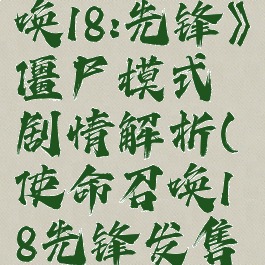 唤18:先锋》
僵尸模式
剧情解析(
使命召唤1
8先锋发售